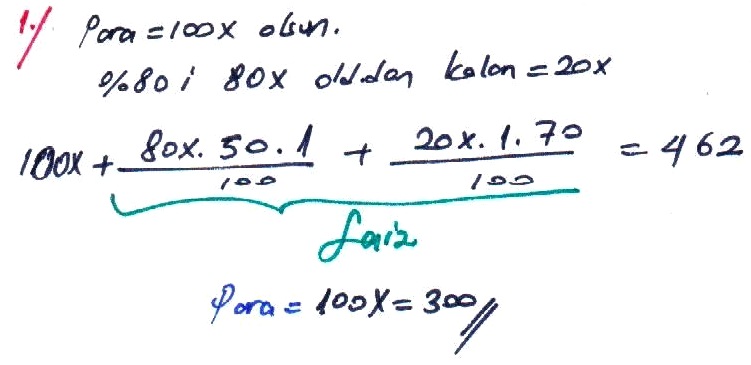 1-/ Para = 100x olsun.
%80 i 80x old.dan kalan = 20x
100x + 80x. 50. 1 / 100 + 20x. 1. 70 / 100 = 462
faiz
Para = 100x = 300 //